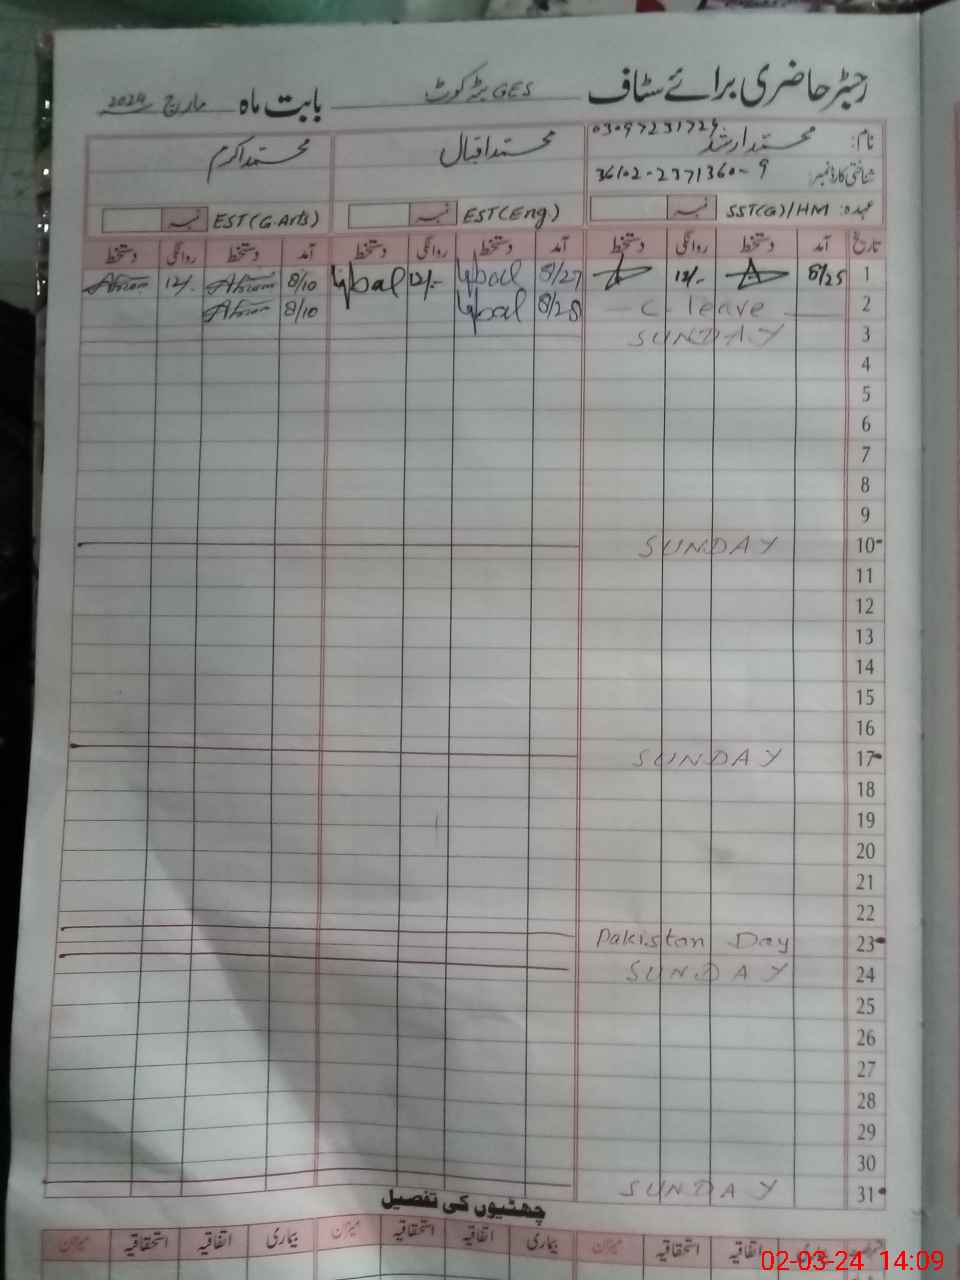 رجسٹر حاضری برائے سٹاف GES بٹے کوٹ بابت ماہ مارچ 2024
نام: محمد ارشد 03097231729 محمد اقبال محمد اکرم
شناختی کارڈ نمبر: 36102-2371360-9
عہدہ: SST(G)/HM نمبر EST(Eng) نمبر EST(G.Arts) نمبر
تاریخ آمد دستخط روانگی دستخط آمد دستخط روانگی دستخط آمد دستخط روانگی دستخط
1 8/25 12/- 8/27 Iqbal 12/- Iqbal 8/10 Akram 12/- Akram
2 C. leave 8/28 Iqbal 8/10 Akram
3 SUNDAY
4
5
6
7
8
9
10 SUNDAY
11
12
13
14
15
16
17 SUNDAY
18
19
20
21
22
23 Pakistan Day
24 SUNDAY
25
26
27
28
29
30
31 SUNDAY
چھٹیوں کی تفصیل
بیماری اتفاقیہ استحقاقیہ میزان بیماری اتفاقیہ استحقاقیہ میزان بیماری اتفاقیہ استحقاقیہ میزان
02-03-24 14:09